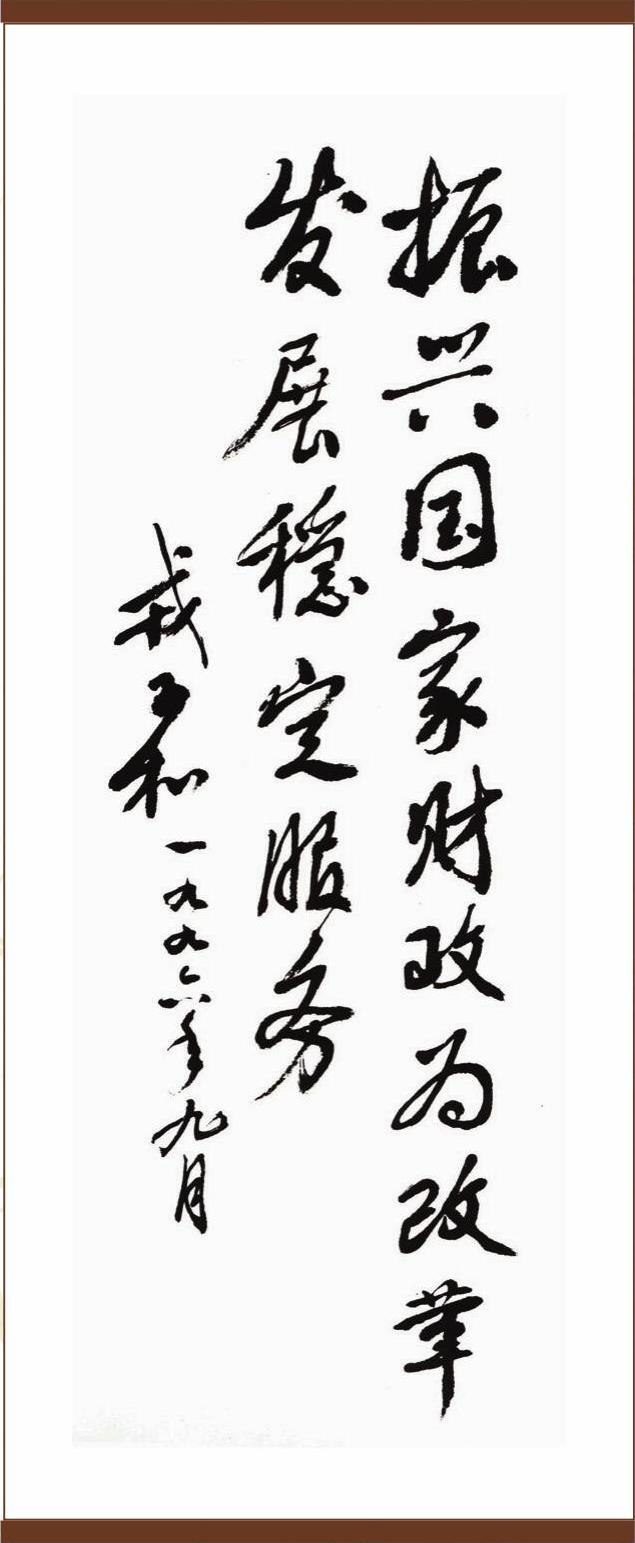 振兴国家财政为改革
发展稳定服务
戎子和一九九六年九月